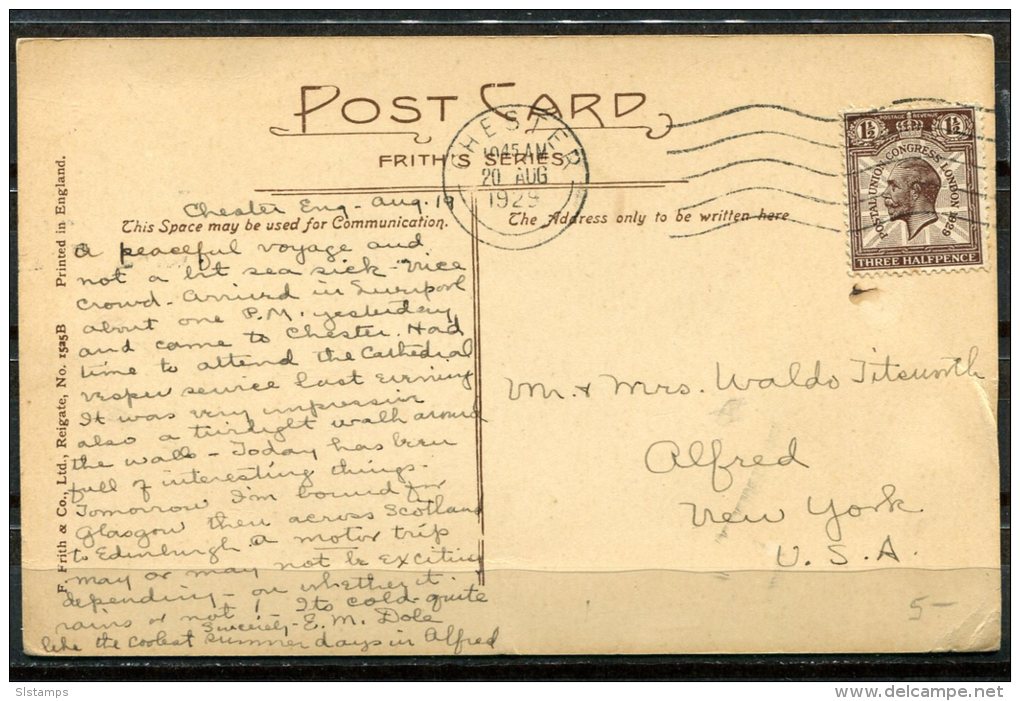 POST CARD
FRITH'S SERIES
CHESTER
10 45 AM
20 AUG
1929
1½ POSTAGE REVENUE 1½
POSTAL UNION CONGRESS LONDON 1929
THREE HALFPENCE
This Space may be used for Communication.
The Address only to be written here
F. Frith & Co., Ltd., Reigate, No. 1525B Printed in England.
Chester Eng - Aug. 19
A peaceful voyage and
not a bit sea sick - nice
crowd - Arrived in Liverpool
about one P.M. yesterday
and came to Chester. Had
time to attend the Cathedral
vesper service last evening
It was very impressive
also a twilight walk around
the walls - Today has been
full of interesting things.
Tomorrow I'm bound for
Glasgow then across Scotland
to Edinburgh. A motor trip
may or may not be exciting
depending - on whether it
rains or not! Its cold - quite
like the coolest summer days in Alfred
Sincerely - E. M. Dole
Mr. & Mrs. Waldo Titsworth
Alfred
New York
U.S.A.
5-
Slstamps
www.delcampe.net